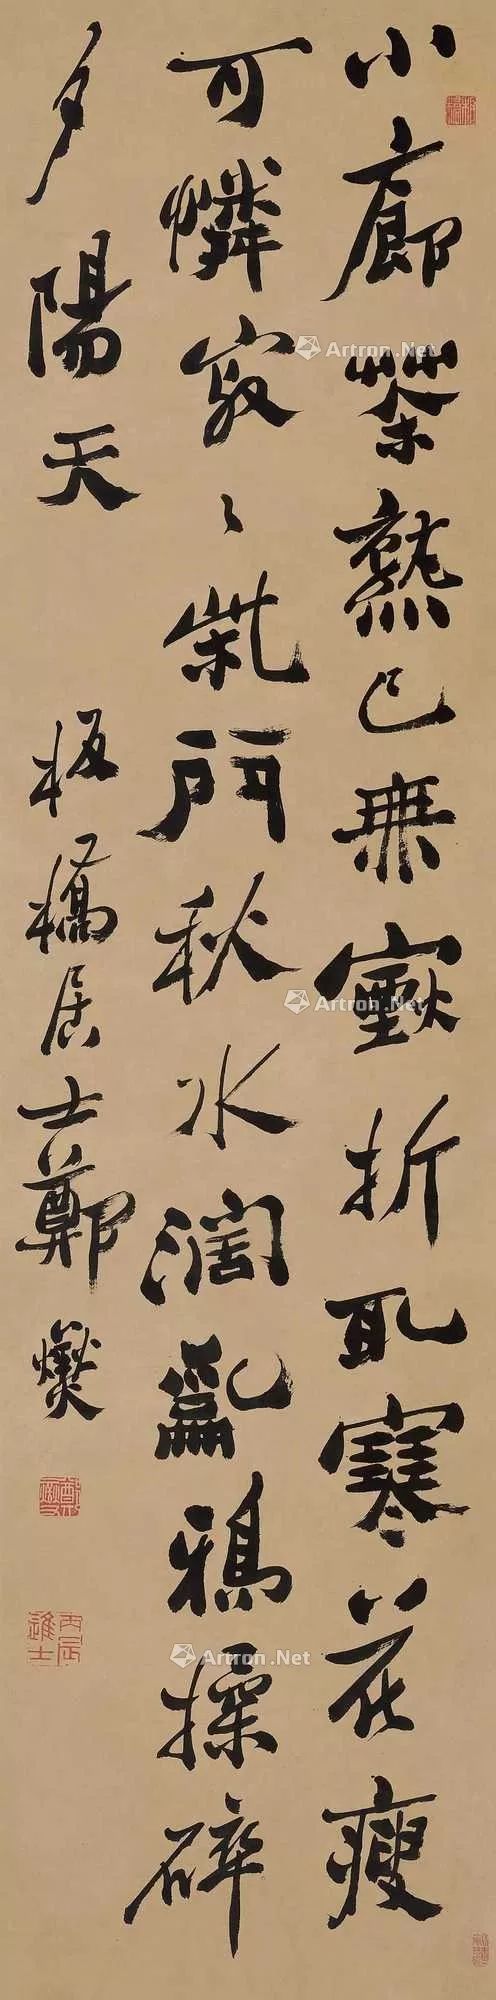 小廊茶熟已無煙折取寒花瘦
可憐寂〻柴門秋水濶亂鴉揉碎
夕陽天
板橋居士鄭燮
丙辰進士
Artron.Net
Artron.Net
Artron.Net